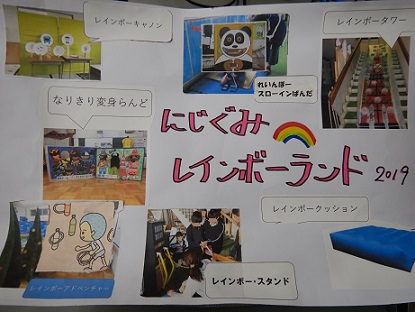 レインボーキャノン
レインボータワー
れいんぼー
スローインぱんだ
なりきり変身らんど
にじぐみ
レインボーランド 2019
レインボークッション
レインボー・スタンド
レインボーアドベンチャー